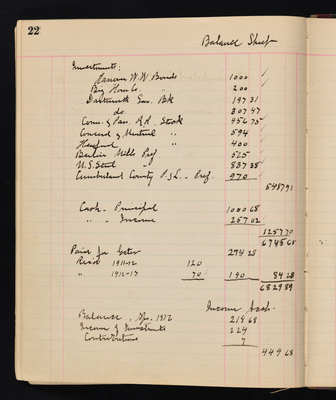 22
Balance Sheet
Investments:
W. W. Bonds 1000
200
Dartmouth Sav. Bk 197 31
do 307 47
Conn. & Pass. R.R. Stock 456 75
Concord & Montreal " 594
" 400
Berlin Mills Pref 525
U.S. Steel 837 38
Cumberland County P & L. Pref. 970
5487 91
Cash - Principal 1000 68
" - Income 257 02
1257 70
6745 61
274 28
1911-12 120
" 1912-13 70 190 84 28
6829 89
Income Cash.
Balance, 1912 218 68
Income of Investments 224
Contributions 7
449 68